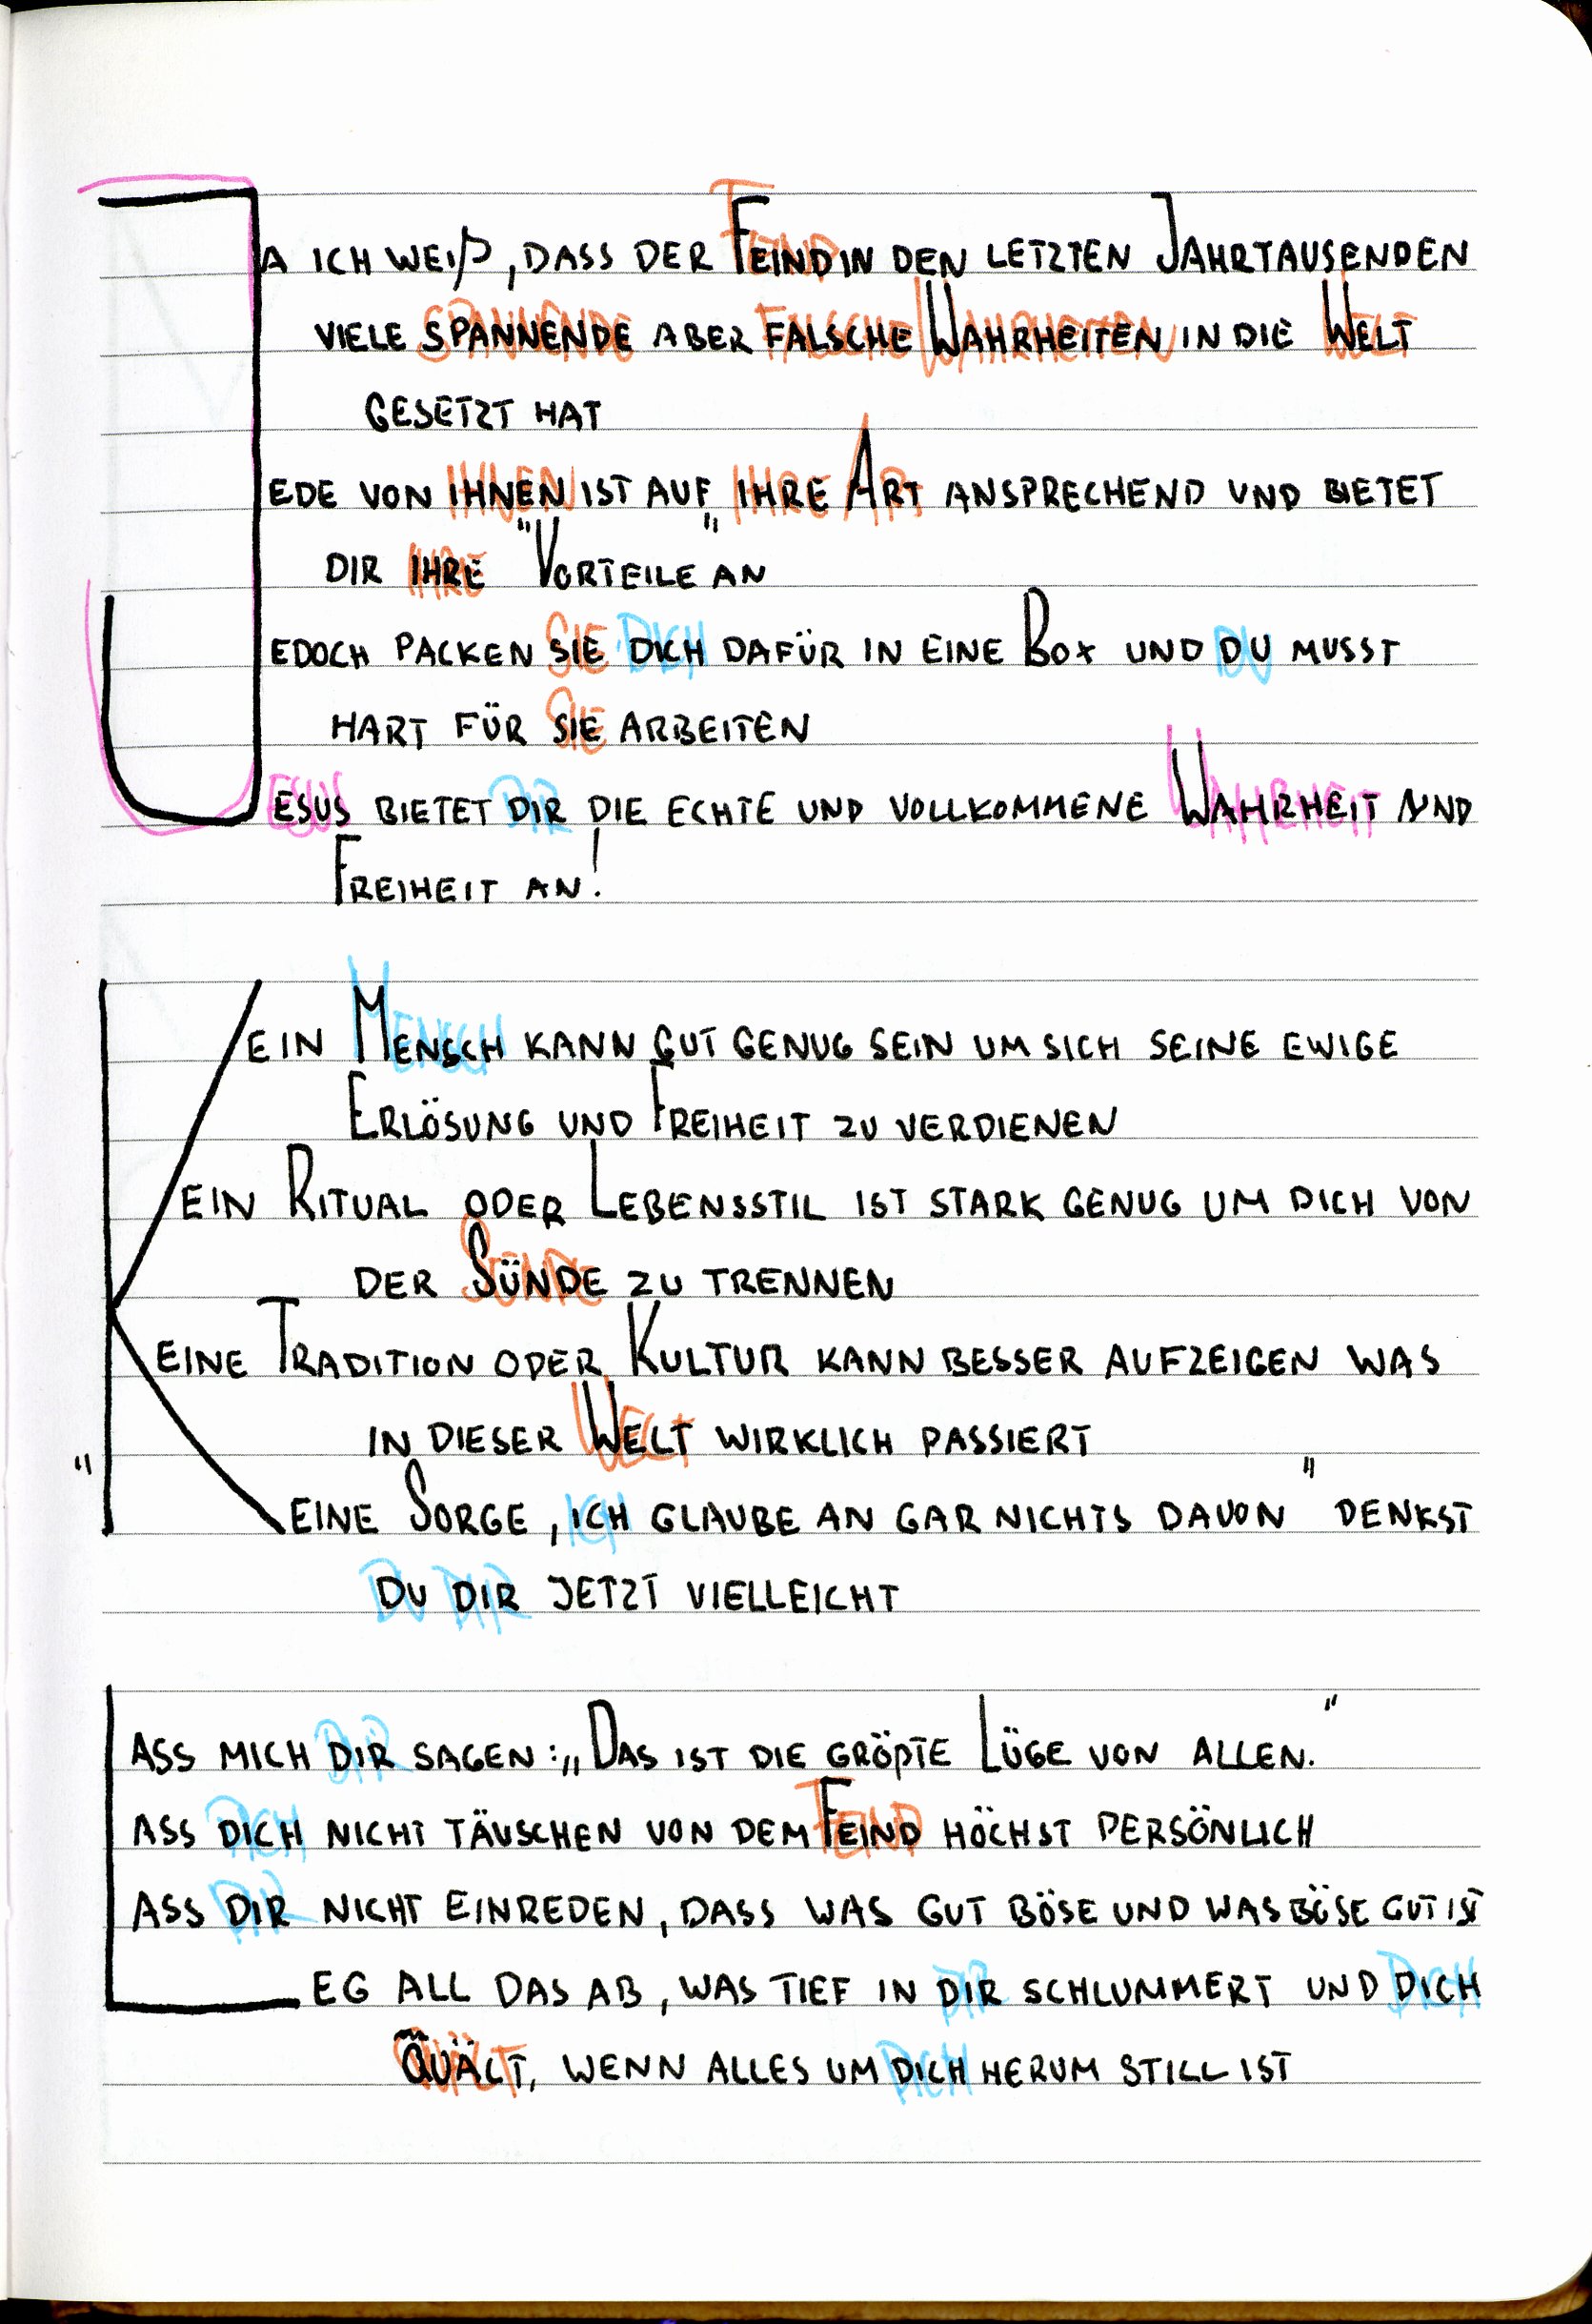 JA ICH WEIß, DASS DER FEIND IN DEN LETZTEN JAHRTAUSENDEN
VIELE SPANNENDE ABER FALSCHE WAHRHEITEN IN DIE WELT
GESETZT HAT
JEDE VON IHNEN IST AUF IHRE ART ANSPRECHEND UND BIETET
DIR IHRE "VORTEILE" AN
JEDOCH PACKEN SIE DICH DAFÜR IN EINE BOX UND DU MUSST
HART FÜR SIE ARBEITEN
JESUS BIETET DIR DIE ECHTE UND VOLLKOMMENE WAHRHEIT UND
FREIHEIT AN!
„KEIN MENSCH KANN GUT GENUG SEIN UM SICH SEINE EWIGE
ERLÖSUNG UND FREIHEIT ZU VERDIENEN
KEIN RITUAL ODER LEBENSSTIL IST STARK GENUG UM DICH VON
DER SÜNDE ZU TRENNEN
KEINE TRADITION ODER KULTUR KANN BESSER AUFZEIGEN WAS
IN DIESER WELT WIRKLICH PASSIERT
"KEINE SORGE, ICH GLAUBE AN GAR NICHTS DAVON" DENKST
DU DIR JETZT VIELLEICHT
LASS MICH DIR SAGEN: „DAS IST DIE GRÖßTE LÜGE VON ALLEN."
LASS DICH NICHT TÄUSCHEN VON DEM FEIND HÖCHST PERSÖNLICH
LASS DIR NICHT EINREDEN, DASS WAS GUT BÖSE UND WAS BÖSE GUT IST
LEG ALL DAS AB, WAS TIEF IN DIR SCHLUMMERT UND DICH
QUÄLT, WENN ALLES UM DICH HERUM STILL IST